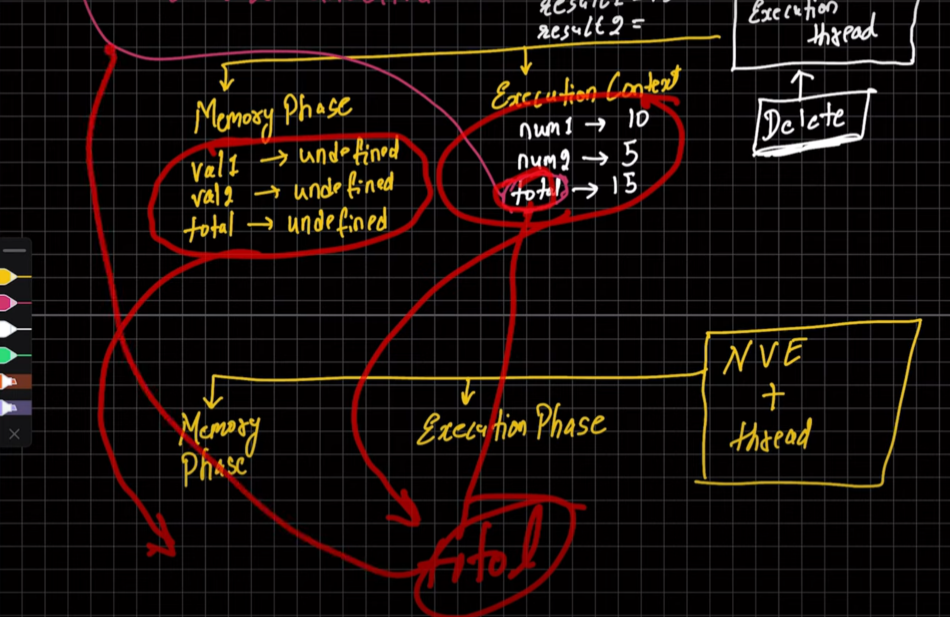 result2 =
Execution
thread
Memory Phase
val1 → undefined
val2 → undefined
total → undefined
Execution Context
num1 → 10
num2 → 5
total → 15
Delete
Memory
Phase
Execution Phase
NVE
+
thread
total